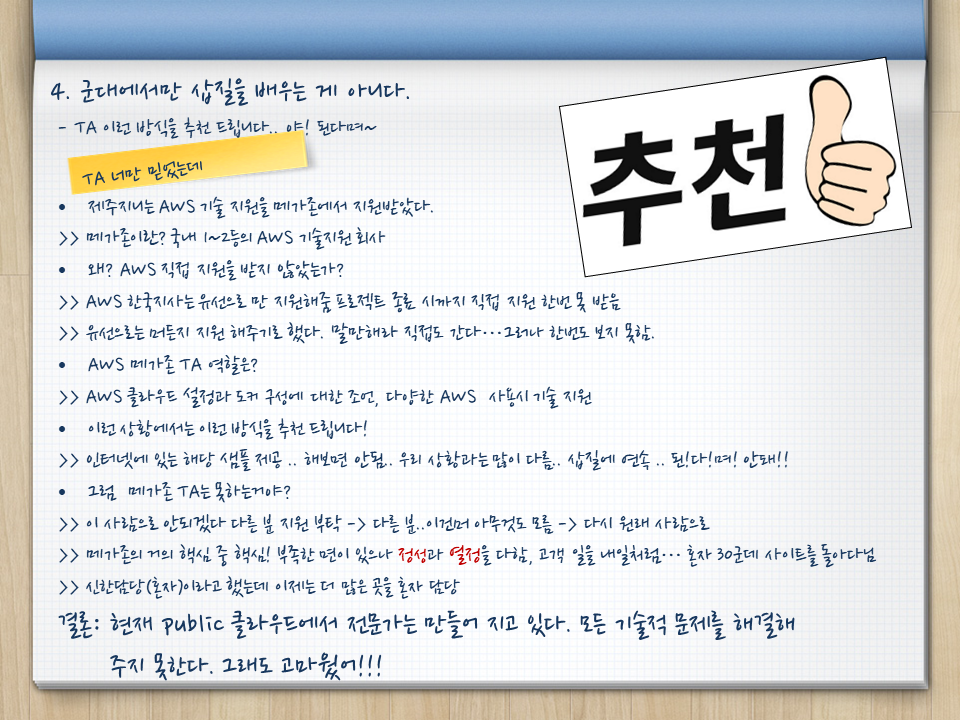 4. 군대에서만 삽질을 배우는 게 아니다.
- TA 이런 방식을 추천 드립니다.. 야! 된다며~
추천
TA 너만 믿었는데
• 제주지니는 AWS 기술 지원을 메가존에서 지원받았다.
>> 메가존이란? 국내 1~2등의 AWS 기술지원 회사
• 왜? AWS 직접 지원을 받지 않았는가?
>> AWS 한국지사는 유선으로 만 지원해줌 프로젝트 종료 시까지 직접 지원 한번 못 받음
>> 유선으로는 머든지 지원 해주기로 했다. 말만해라 직접도 간다…그러나 한번도 보지 못함.
• AWS 메가존 TA 역할은?
>> AWS 클라우드 설정과 도커 구성에 대한 조언, 다양한 AWS 사용시 기술 지원
• 이런 상황에서는 이런 방식을 추천 드립니다!
>> 인터넷에 있는 해당 샘플 제공 .. 해보면 안됨.. 우리 상황과는 많이 다름.. 삽질에 연속 .. 된!다!며! 안돼!!
• 그럼 메가존 TA는 못하는거야?
>> 이 사람으로 안되겠다 다른 분 지원 부탁 -> 다른 분..이건머 아무것도 모름 -> 다시 원래 사람으로
>> 메가존의 거의 핵심 중 핵심! 부족한 면이 있으나 정성과 열정을 다함, 고객 일을 내일처럼… 혼자 30군데 사이트를 돌아다님
>> 신한담당(혼자)이라고 했는데 이제는 더 많은 곳을 혼자 담당
결론: 현재 public 클라우드에서 전문가는 만들어 지고 있다. 모든 기술적 문제를 해결해
주지 못한다. 그래도 고마웠어!!!